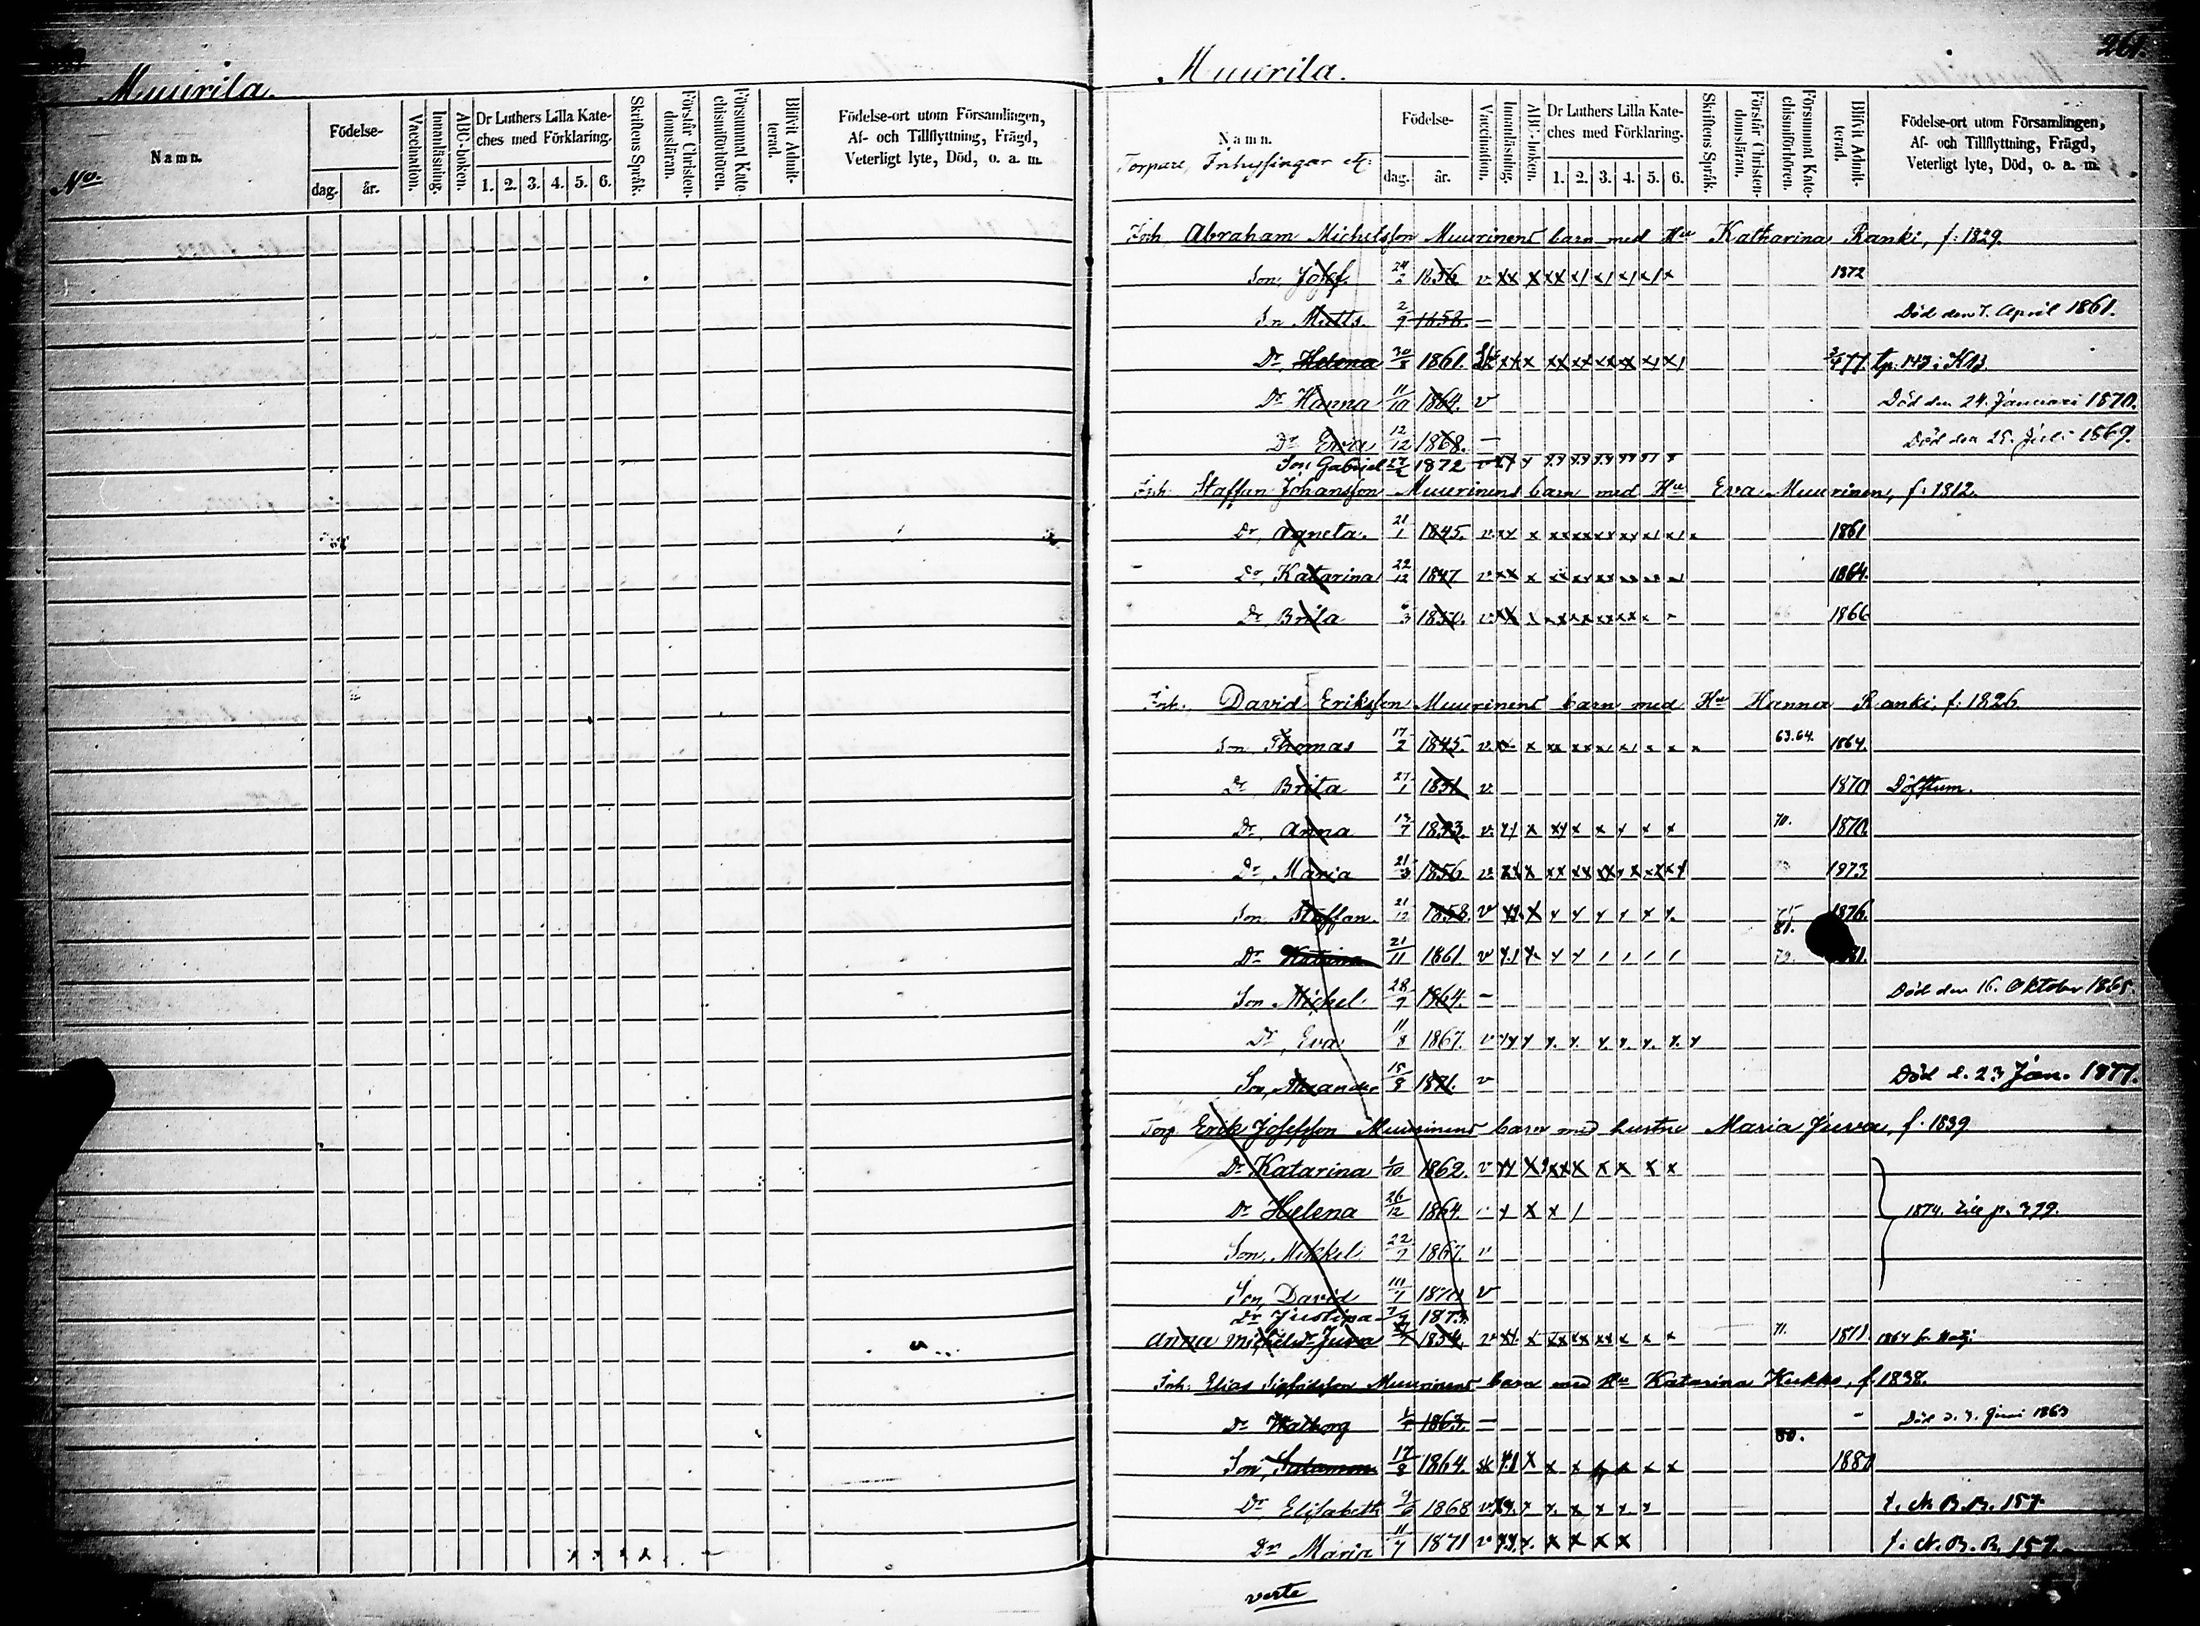 Muurila.
No.
Namn.
Födelse-
dag. år.
Vaccination.
Innanläsning.
ABC-boken.
Dr Luthers Lilla Kate-
ches med Förklaring.
1. 2. 3. 4. 5. 6.
Skriftens Språk.
Förstår Christen-
domsläran.
Försummat Kate-
chismiförhören.
Blifvit Admit-
terad.
Födelse-ort utom Församlingen,
Af- och Tillflyttning, Frägd,
Veterligt lyte, Död, o. a. m.
261.
Muurila.
Namn.
Torpare, Inhysingar etc:
Födelse-
dag. år.
Vaccination.
Innanläsning.
ABC-boken.
Dr Luthers Lilla Kate-
ches med Förklaring.
1. 2. 3. 4. 5. 6.
Skriftens Språk.
Förstår Christen-
domsläran.
Försummat Kate-
chismiförhören.
Blifvit Admit-
terad.
Födelse-ort utom Församlingen,
Af- och Tillflyttning, Frägd,
Veterligt lyte, Död, o. a. m.
Inh. Abraham Michelsson Muurinens barn med Hu Katharina Ranki, f: 1829.
Son, Josef. 24/2 1856 v. xx x xx x/ x/ x/ x/ x 1872
Sn Matts. 2/9 1858. — Död den 7. April 1861.
Dr Helena 30/8 1861. xx x xx xx xx xx x/ x/ 77. tp. 143 i KB.
Dr Hanna 11/10 1864. v Död den 24. Januari 1870.
Dr Eva 12/12 1868. — Död den 25. Juli 1869.
Son Gabriel 1872
Inh. Staffan Johansson Muurinens barn med Hu Eva Muurinen, f: 1812.
Dr, Agneta. 21/1 1845. v. xx x xx xx xx xx x/ x/ x 1861
Dr, Katarina 22/12 1847 v xx x xx xx xx xx xx x/ 1864.
Dr, Brita 6/3 1850. v. xx x xx xx xx xx x x 1866
Inh. David Eriksson Muurinens barn med Hu Hanna Ranki, f: 1826.
Son, Thomas 17/2 1845. v. xx x xx xx x/ x/ x x x 63.64. 1864.
Dr, Brita 27/1 1851 v 1870 Döfstum.
Dr, Anna 1853. v. x x xx x x x x x 70. 1870.
Dr, Maria 21/3 1856. v. xx x xx xx xx x x xx xx 1873
Son Staffan. 21/12 1858. v xx. x x x x x x x. 81. 1876.
Dr Katrina 21/11 1861. v x/ x x x / / / / 79.
Son Michel. 28/9 1864. — Död den 16. Oktober 1865.
Dr, Eva 11/8 1867. v xx x x. x. x. x. x. x. x
Son, Alexander 15/8 1871. v Död d. 23 Jan. 1877.
Torp. Erik Josefsson Muurinens barn med hustru Maria Juva, f. 1839
Dr Katarina 1/10 1862. v xx x xx x x x x x
Dr Helena 26/12 1864. x x x / 1874. p. 379.
Son, Mikkel 22/9 1867. v
Son, David 1870 v
Dr Justina 1873.
Anna Michelsdr Juva 1854. v xx. x xx xx xx x x x 71. 1871
Inh. Elias Sigfridsson Muurinens barn med Hu Katarina Kukko, f. 1838.
Dr Walborg 1863. — Död d. 3. Juni 1863
Son, Salamon 17/8 1864. x x x x x x x 80. 1880
Dr Elisabeth 1868 t. N. B. B. 157.
Dr Maria 11/7 1871 v x x x x t. N. B. B. 157.
verte